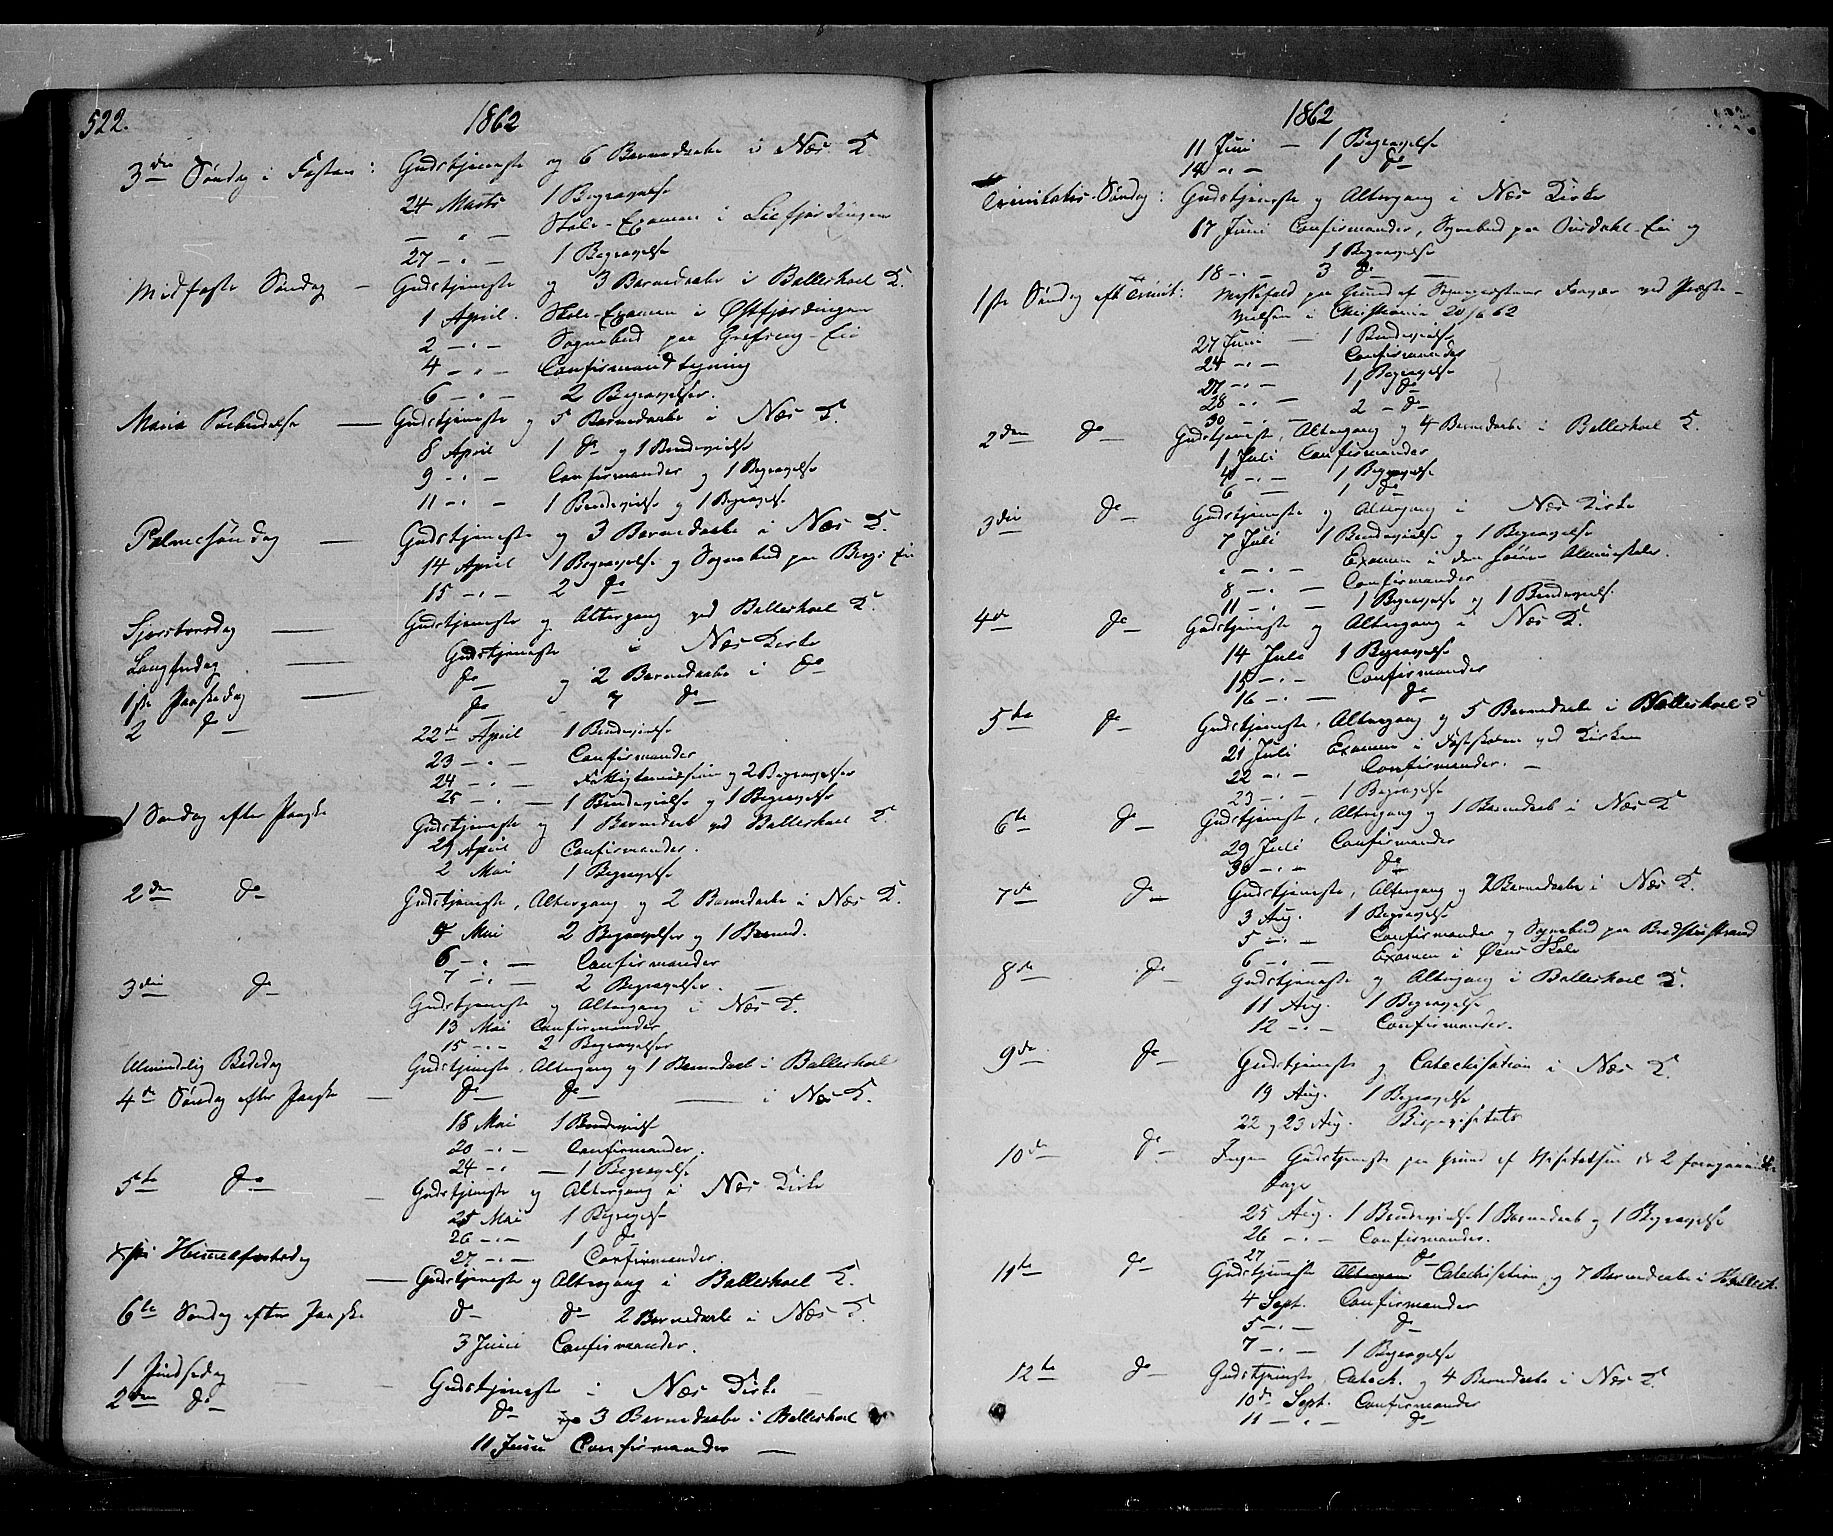 522.
1862
3die Søndag i Fasten: Gudstjeneste og 6 Barnedaabe i Næs K.
24 Marts 1 Begravelse
— " — Skole-Examen i
27 - " - 1 Begravelse
Midfaste Søndag — Gudstjeneste og 3 Barnedaabe i Ballishoel K.
1 April. Skole-Examen i Østfjerdingen
2 - " - Sognebud paa Grefsrug-Eie
4 - " - Confirmandtegning
6 - " - 2 Begravelser.
Maria Bebudelse — Gudstjeneste og 5 Barnedaabe i Næs K.
8 April 1 do og 1 Brudevielse
9 - " - Confirmander og 1 Begravelse
11 - " - 1 Brudevielse og 1 Begravelse
Palmesøndag — Gudstjeneste og 3 Barnedaabe i Næs K.
14 April 1 Begravelse og Sognebud paa Bergs Eie
15 - " - 2 do
Skjærthorsdag — Gudstjeneste og Altergang ved Ballishoel K.
Langfredag — Gudstjeneste i Næs Kirke
1ste Paaskedag — do og 2 Barnedaabe i do
2 do do 7 do
22de April 1 Brudevielse
23 - " - Confirmander
24 - " - Fattigkommission og 2 Begravelser
25 - " - 1 Brudevielse og 1 Begravelse
1 Søndag efter Paaske Gudstjeneste og 1 Barnedaab ved Ballishoel K.
29 April Confirmander.
2 Mai 1 Begravelse
2den do Gudstjeneste, Altergang og 2 Barnedaabe i Næs K.
5 Mai 2 Begravelser og 1 Barned.
6 - " - Confirmander
7 - " - 2 Begravelser.
3die do Gudstjeneste og Altergang i Næs K.
13 Mai Confirmander
15 - " - 2 Begravelser
Almindelig Bededag Gudstjeneste, Altergang og 1 Barnedaab i Ballishoel
4de Søndag efter Paaske — do do — i Næs K.
18 Mai 1 Brudevielse
20 - " - Confirmander.
24 - " - 1 Begravelse
5te do — Gudstjeneste og Altergang i Næs Kirke
25 Mai 1 Begravelse
26 - " - 1 do
27 - " - Confirmander.
Kristi Himmelfartsdag — Gudstjeneste og Altergang i Ballishoel K.
6te Søndag efter Paaske do do 2 Barnedaabe i Næs K.
3 Juni Confirmander.
1 Pindsedag Gudstjeneste i Næs Kirke
2den do do og 3 Barnedaabe i Ballishoel K
11 Juni Confirmander —
1862
11 Juni — 1 Begravelse
14 - " - 1 do
Trinitatis-Søndag: Gudstjeneste og Altergang i Næs Kirke
17 Juni Confirmander, Sognebud paa Eie og
1 Begravelse
18 - " - 3 do
1ste Søndag eft Trinit: Messefald paa Grund af Sognepræstens Fravær ved Præste-
i Christiania 20/6 62
27 Juni — 1 Brudevielse
24 - " - Confirmander
27 - " - 1 Begravelse
28 - " - 1 do
30 - " - 2 - do
2den do Gudstjeneste, Altergang og 4 Barnedaabe i Ballishoel K.
1 Juli Confirmander
4 - " - 1 Begravelse
6 — 1 do
3die do Gudstjeneste og Altergang i Næs Kirke
7 Juli 1 Brudevielse og 1 Begravelse
" - " - Examen i den høiere Almueskole.
8 - " - Confirmander
11 - " - 1 Begravelse og 1 Brudeviels.
4de do Gudstjeneste og Altergang i Næs K.
14 Juli 1 Begravelse
15 - " - Confirmander
16 - " - do
5te do Gudstjeneste, Altergang og 5 Barnedaabe i Ballishoel K
21 Juli Examen i Fastskolen ved Kirken
22 - " - Confirmander. —
23 - " - 1 Begravelse
6te do Gudstjeneste, Altergang og 1 Barnedaab i Næs K
29 Juli Confirmander
30 - " - do
7de do Gudstjeneste, Altergang og 2 Barnedaabe i Næs K.
3 Aug. 1 Begravelse
5 - " - Confirmander og Sognebud paa
6 - " - Examen i Øens Skole
8de do Gudstjeneste og Altergang i Ballishoel K.
11 Aug. 1 Begravelse
12 - " - Confirmander.
9de do Gudstjeneste og Catechisation i Næs K.
19 Aug. 1 Begravelse
22 og 23 Aug. Bispevisitats
10de do Ingen Gudstjeneste paa Grund af Visitatsen de 2 foregaaende
Dage
25 Aug. 1 Brudevielse 1 Barnedaab og 1 Begravelse
26 - " - Confirmander.
27 - " - do
11te do Gudstjeneste Altergang Catechisation, og 7 Barnedaabe i Ballish.
4 Sept. Confirmander
5 - " - do
7 - " - 1 Begravelse
12te do Gudstjeneste, Catech. og 4 Barnedaabe i Næs K.
10de Sept. Confirmander
11 - " - do